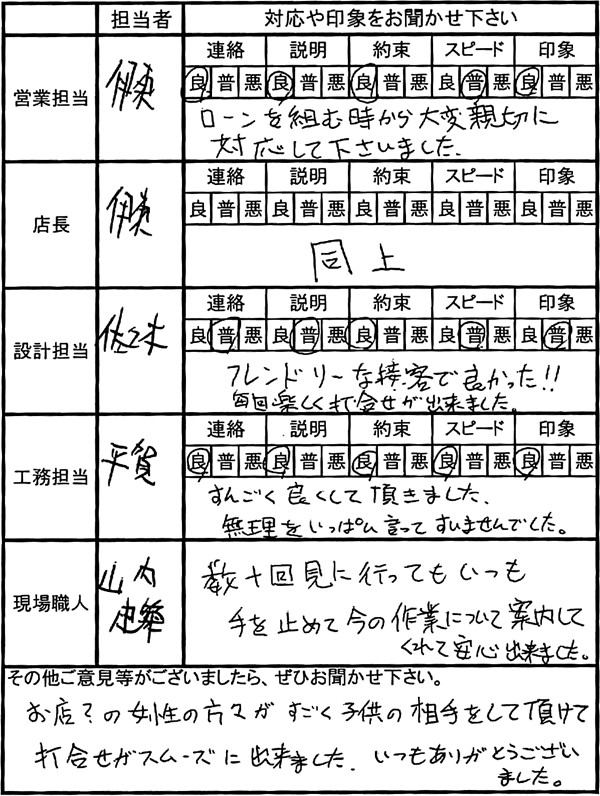 担当者 対応や印象をお聞かせ下さい
営業担当 伊東 連絡 説明 約束 スピード 印象
良 普 悪 良 普 悪 良 普 悪 良 普 悪 良 普 悪
ローンを組む時から大変親切に
対応して下さいました.
店長 伊東 連絡 説明 約束 スピード 印象
良 普 悪 良 普 悪 良 普 悪 良 普 悪 良 普 悪
同上
設計担当 佐々木 連絡 説明 約束 スピード 印象
良 普 悪 良 普 悪 良 普 悪 良 普 悪 良 普 悪
フレンドリーな接客で良かった!!
毎回楽しく打合せが出来ました。
工務担当 平賀 連絡 説明 約束 スピード 印象
良 普 悪 良 普 悪 良 普 悪 良 普 悪 良 普 悪
すんごく良くして頂きました.
無理をいっぱい言ってすいませんでした。
現場職人 山内
建築
数十回見に行ってもいつも
手を止めて今の作業について案内して
くれて安心出来ました。
その他ご意見等がございましたら、ぜひお聞かせ下さい。
お店?の女性の方々がすごく子供の相手をして頂けて
打合せがスムーズに出来ました. いつもありがとうござい
ました。